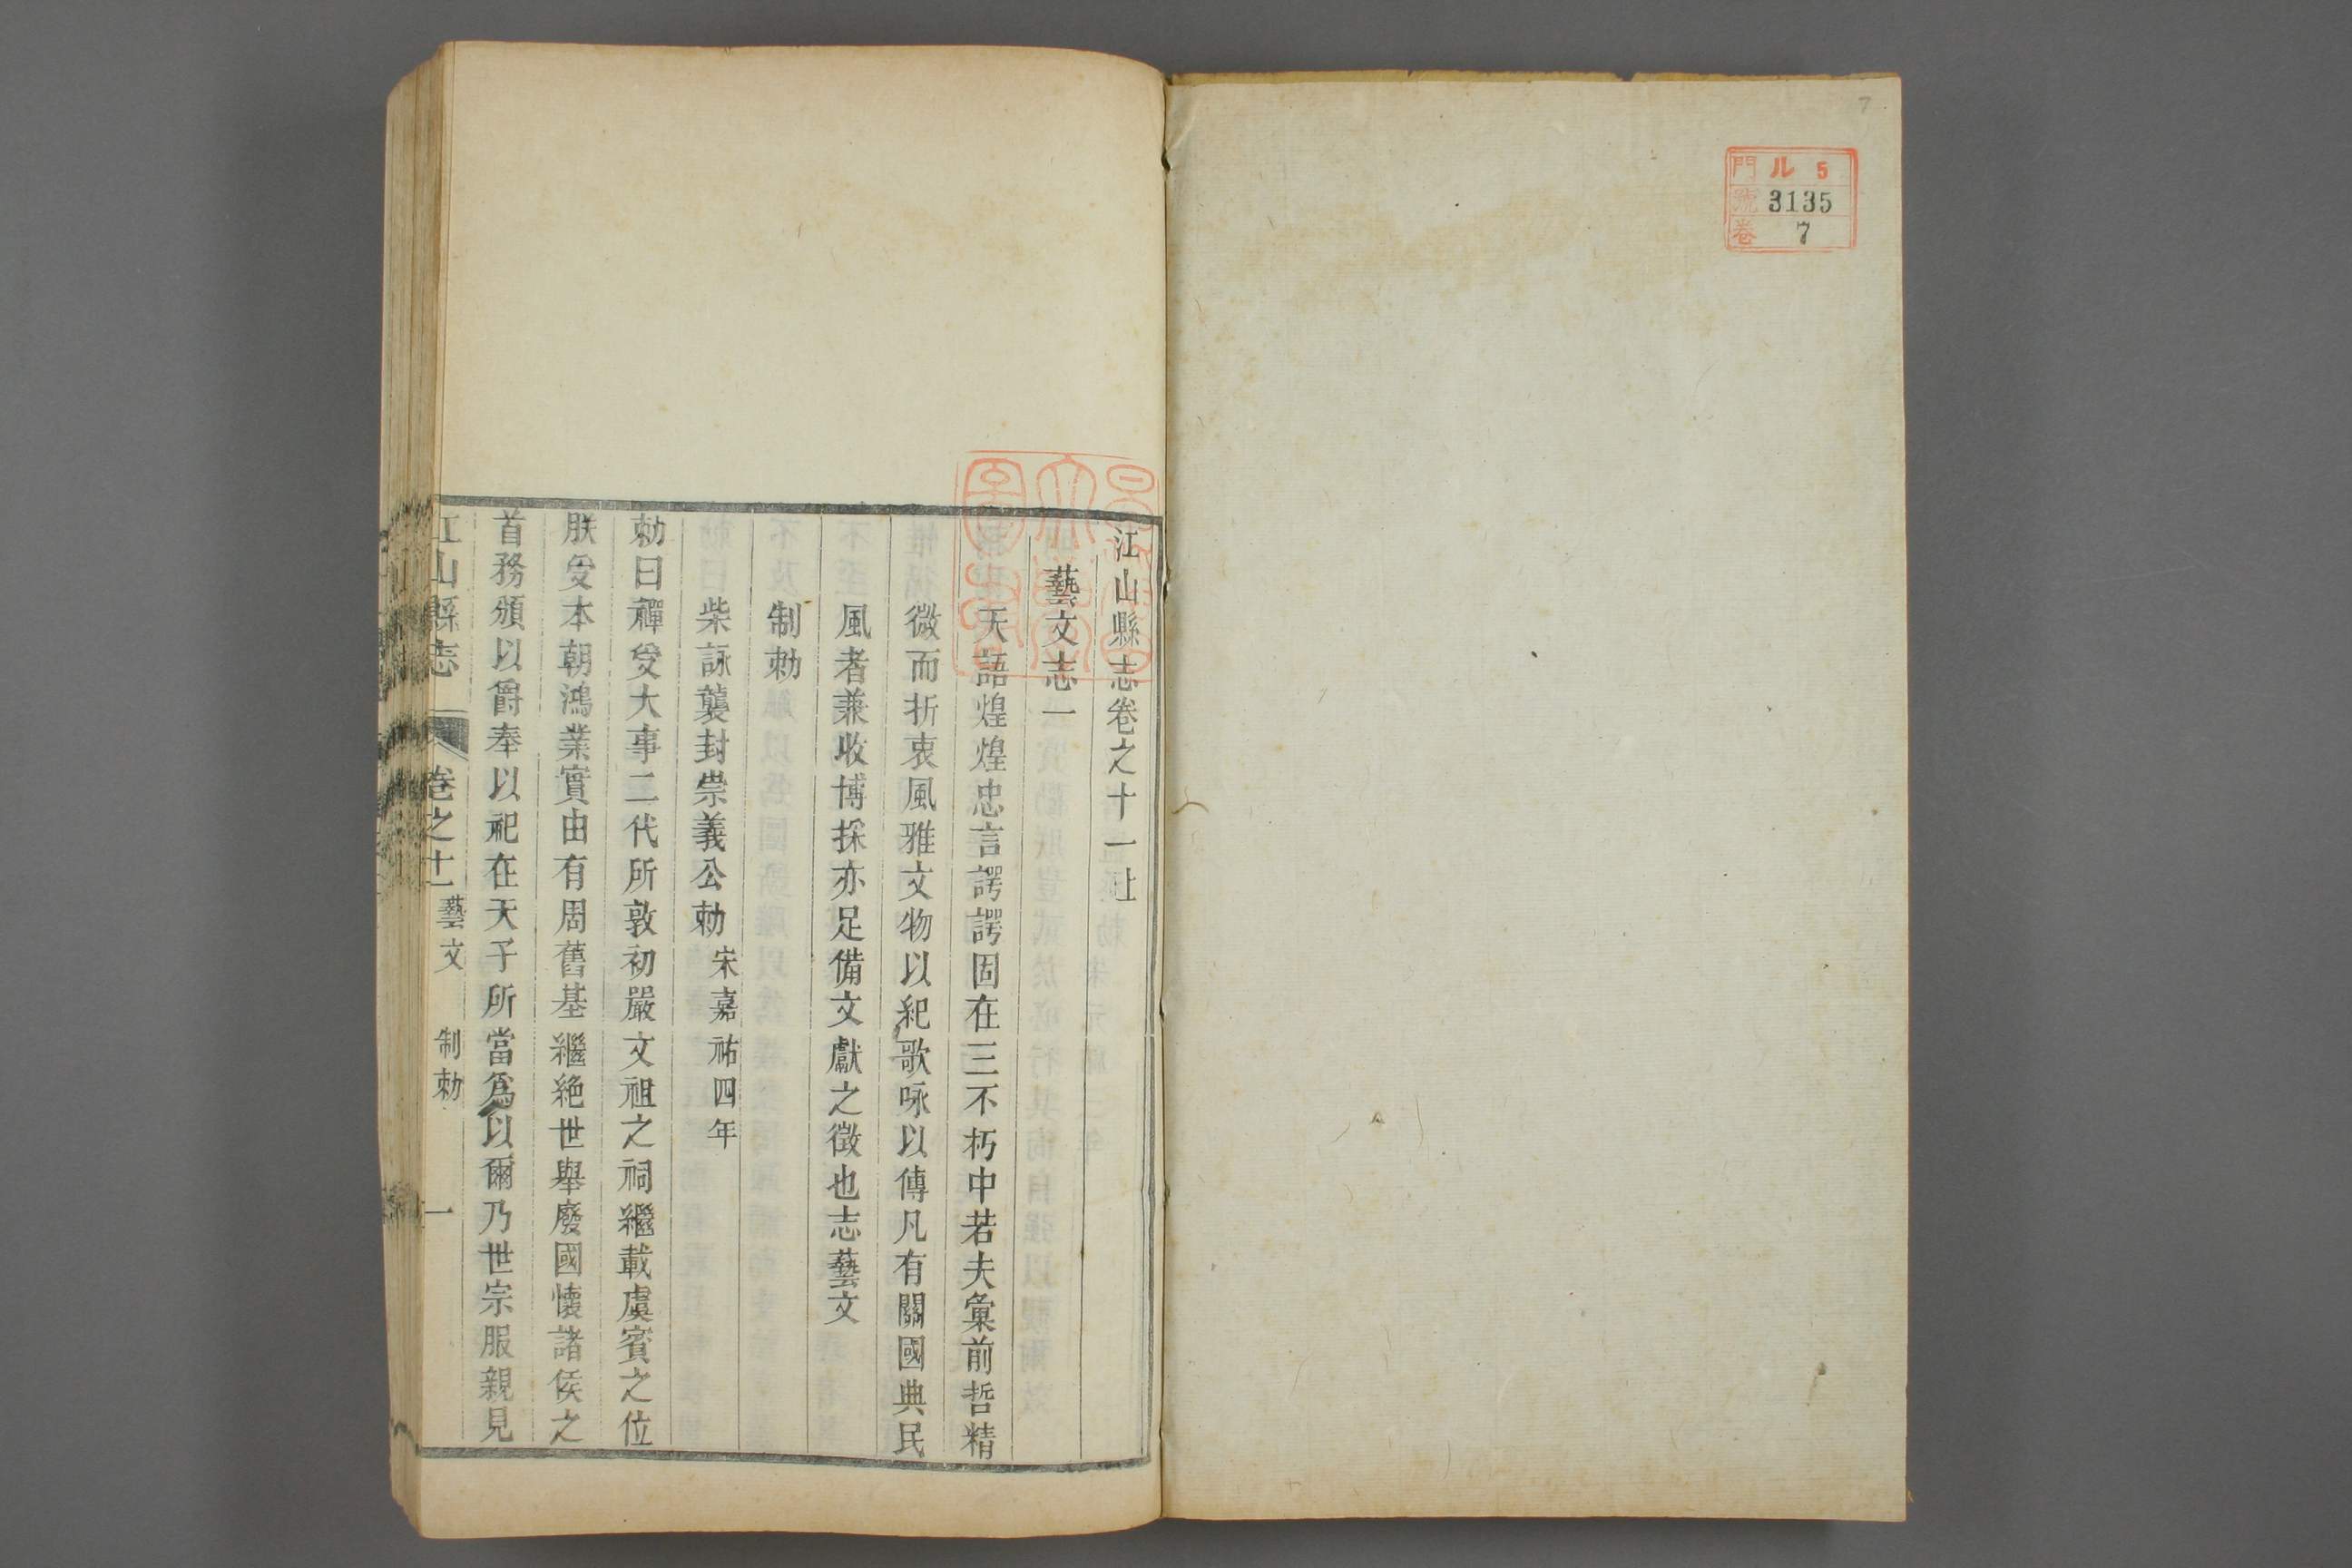 7
門 ル 5
號 3135
卷 7
江山縣志卷之十一上
藝文志一
天語煌煌忠言諤諤固在三不朽中若夫彙前哲精
微而折衷風雅文物以紀歌咏以傳凡有關國典民
風者兼收博採亦足備文獻之徵也志藝文
制勅
柴詠襲封崇義公勅 宋嘉祐四年
勅曰禪受大事二代所敦初嚴文祖之祠繼載虞賓之位
朕受本朝鴻業實由有周舊基繼絶世舉廢國懷諸侯之
首務頒以爵奉以祀在天子所當爲以爾乃世宗服親見
江山縣志 卷之十一 藝文 制勅 一